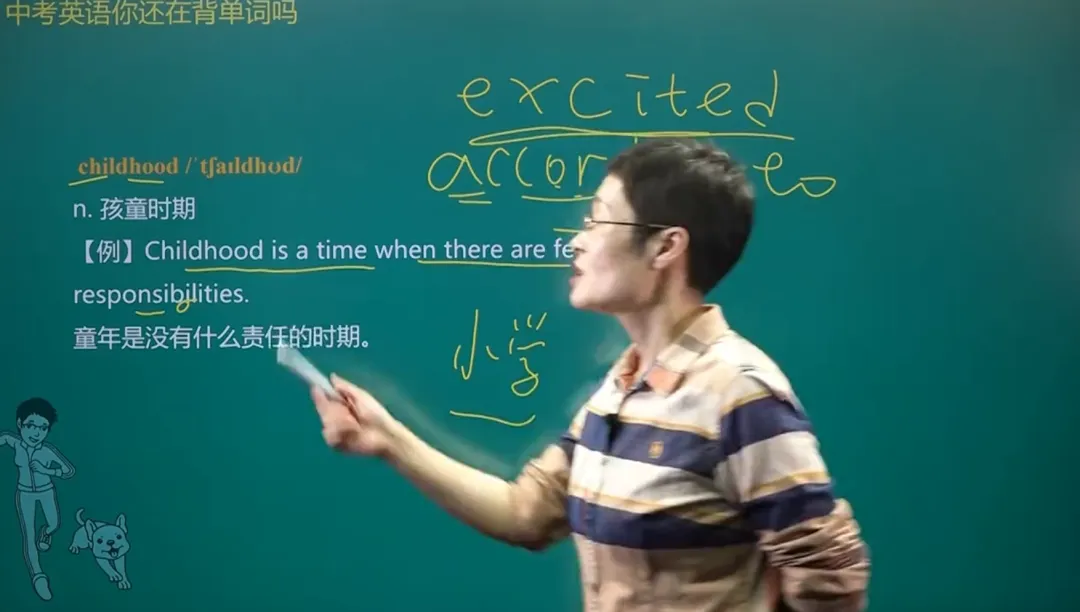 中考英语你还在背单词吗
excited
to
childhood /ˈtʃaɪldhʊd/
n. 孩童时期
【例】Childhood is a time when there are
responsibilities.
童年是没有什么责任的时期。
小学